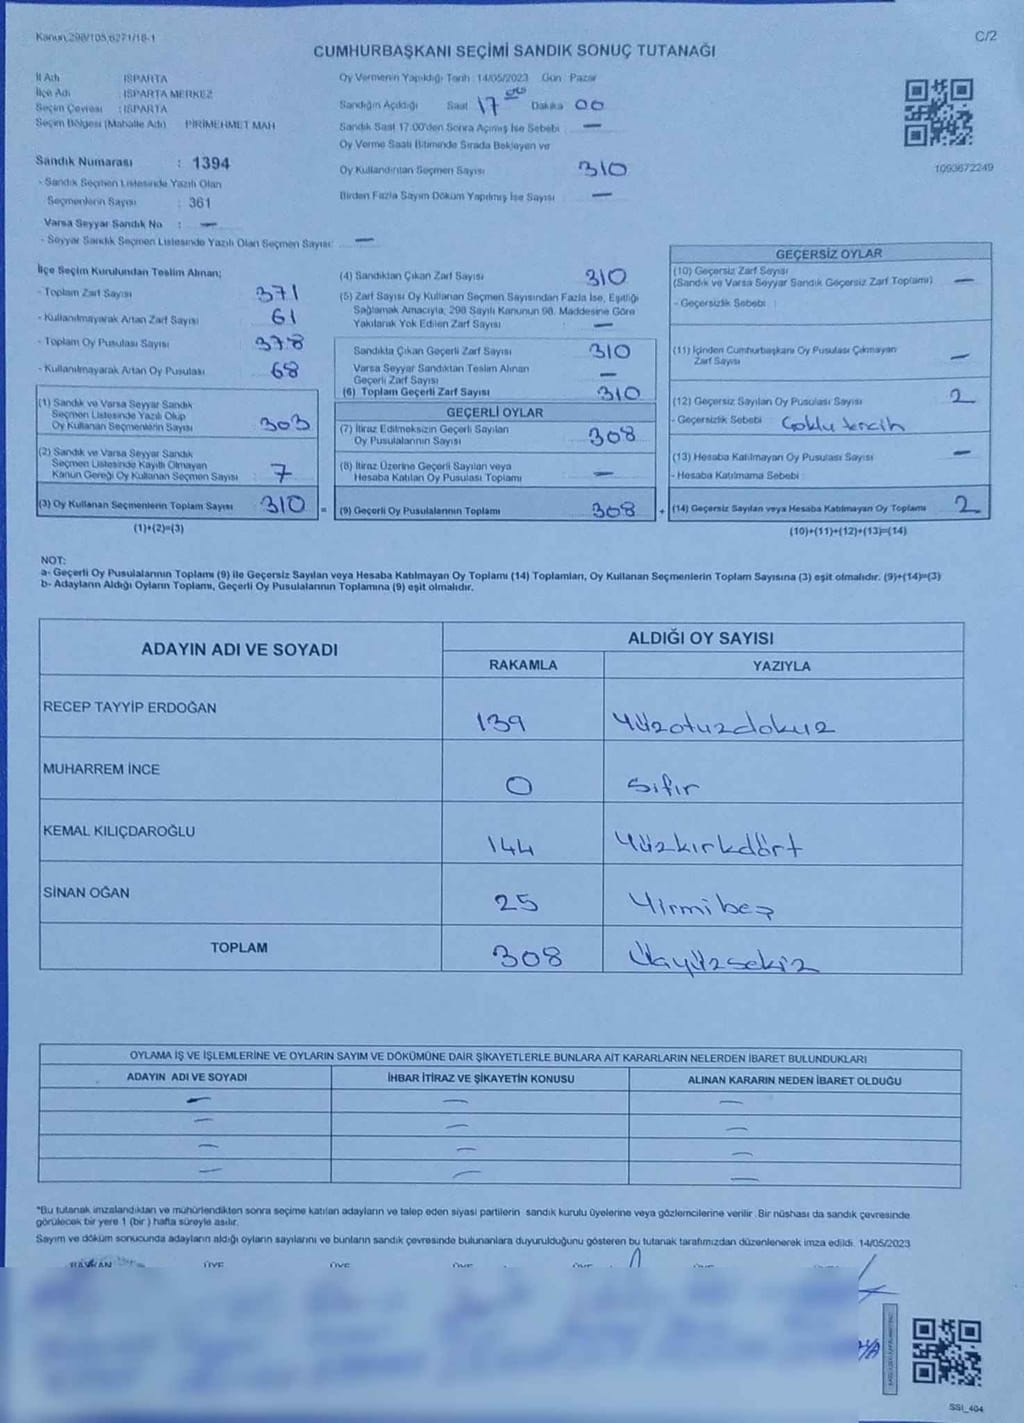 Kanun,298/105,6271/18-1
C/2
CUMHURBAŞKANI SEÇİMİ SANDIK SONUÇ TUTANAĞI
İl Adı : ISPARTA
İlçe Adı : ISPARTA MERKEZ
Seçim Çevresi : ISPARTA
Seçim Bölgesi (Mahalle Adı) PİRİMEHMET MAH
Sandık Numarası : 1394
- Sandık Seçmen Listesinde Yazılı Olan
Seçmenlerin Sayısı : 361
Varsa Seyyar Sandık No : —
- Seyyar Sandık Seçmen Listesinde Yazılı Olan Seçmen Sayısı: —
Oy Vermenin Yapıldığı Tarih : 14/05/2023 Gün : Pazar
Sandığın Açıldığı Saat 17 Dakika 00
Sandık Saat 17:00'den Sonra Açılmış İse Sebebi : —
Oy Verme Saati Bitiminde Sırada Bekleyen ve
Oy Kullandırılan Seçmen Sayısı 310
Birden Fazla Sayım Döküm Yapılmış İse Sayısı : —
1093672249
İlçe Seçim Kurulundan Teslim Alınan;
- Toplam Zarf Sayısı 371
- Kullanılmayarak Artan Zarf Sayısı 61
- Toplam Oy Pusulası Sayısı 378
- Kullanılmayarak Artan Oy Pusulası 68
(1) Sandık ve Varsa Seyyar Sandık
Seçmen Listesinde Yazılı Olup
Oy Kullanan Seçmenlerin Sayısı 303
(2) Sandık ve Varsa Seyyar Sandık
Seçmen Listesinde Kayıtlı Olmayan
Kanun Gereği Oy Kullanan Seçmen Sayısı 7
(3) Oy Kullanan Seçmenlerin Toplam Sayısı 310 =
(1)+(2)=(3)
(4) Sandıktan Çıkan Zarf Sayısı 310
(5) Zarf Sayısı Oy Kullanan Seçmen Sayısından Fazla İse, Eşitliği
Sağlamak Amacıyla, 298 Sayılı Kanunun 98. Maddesine Göre
Yakılarak Yok Edilen Zarf Sayısı : —
Sandıkta Çıkan Geçerli Zarf Sayısı 310
Varsa Seyyar Sandıktan Teslim Alınan
Geçerli Zarf Sayısı —
(6) Toplam Geçerli Zarf Sayısı 310
GEÇERLİ OYLAR
(7) İtiraz Edilmeksizin Geçerli Sayılan
Oy Pusulalarının Sayısı 308
(8) İtiraz Üzerine Geçerli Sayılan veya
Hesaba Katılan Oy Pusulası Toplamı —
(9) Geçerli Oy Pusulalarının Toplamı 308 +
GEÇERSİZ OYLAR
(10) Geçersiz Zarf Sayısı
(Sandık ve Varsa Seyyar Sandık Geçersiz Zarf Toplamı) —
- Geçersizlik Sebebi :
(11) İçinden Cumhurbaşkanı Oy Pusulası Çıkmayan
Zarf Sayısı —
(12) Geçersiz Sayılan Oy Pusulası Sayısı 2
- Geçersizlik Sebebi : Çoklu tercih
(13) Hesaba Katılmayan Oy Pusulası Sayısı —
- Hesaba Katılmama Sebebi :
(14) Geçersiz Sayılan veya Hesaba Katılmayan Oy Toplamı 2
(10)+(11)+(12)+(13)=(14)
NOT:
a- Geçerli Oy Pusulalarının Toplamı (9) ile Geçersiz Sayılan veya Hesaba Katılmayan Oy Toplamı (14) Toplamları, Oy Kullanan Seçmenlerin Toplam Sayısına (3) eşit olmalıdır. (9)+(14)=(3)
b- Adayların Aldığı Oyların Toplamı, Geçerli Oy Pusulalarının Toplamına (9) eşit olmalıdır.
ADAYIN ADI VE SOYADI
ALDIĞI OY SAYISI
RAKAMLA YAZIYLA
RECEP TAYYİP ERDOĞAN 139 Yüzotuzdokuz
MUHARREM İNCE 0 Sıfır
KEMAL KILIÇDAROĞLU 144 Yüzkırkdört
SİNAN OĞAN 25 Yirmibeş
TOPLAM 308 Üçyüzsekiz
OYLAMA İŞ VE İŞLEMLERİNE VE OYLARIN SAYIM VE DÖKÜMÜNE DAİR ŞİKAYETLERLE BUNLARA AİT KARARLARIN NELERDEN İBARET BULUNDUKLARI
ADAYIN ADI VE SOYADI İHBAR İTİRAZ VE ŞİKAYETİN KONUSU ALINAN KARARIN NEDEN İBARET OLDUĞU
— — —
— — —
— — —
— — —
*Bu tutanak imzalandıktan ve mühürlendikten sonra seçime katılan adayların ve talep eden siyasi partilerin sandık kurulu üyelerine veya gözlemcilerine verilir. Bir nüshası da sandık çevresinde
görülecek bir yere 1 (bir ) hafta süreyle asılır.
Sayım ve döküm sonucunda adayların aldığı oyların sayılarını ve bunların sandık çevresinde bulunanlara duyurulduğunu gösteren bu tutanak tarafımızdan düzenlenerek imza edildi. 14/05/2023
BAŞKAN ÜYE ÜYE ÜYE ÜYE
SSI_404